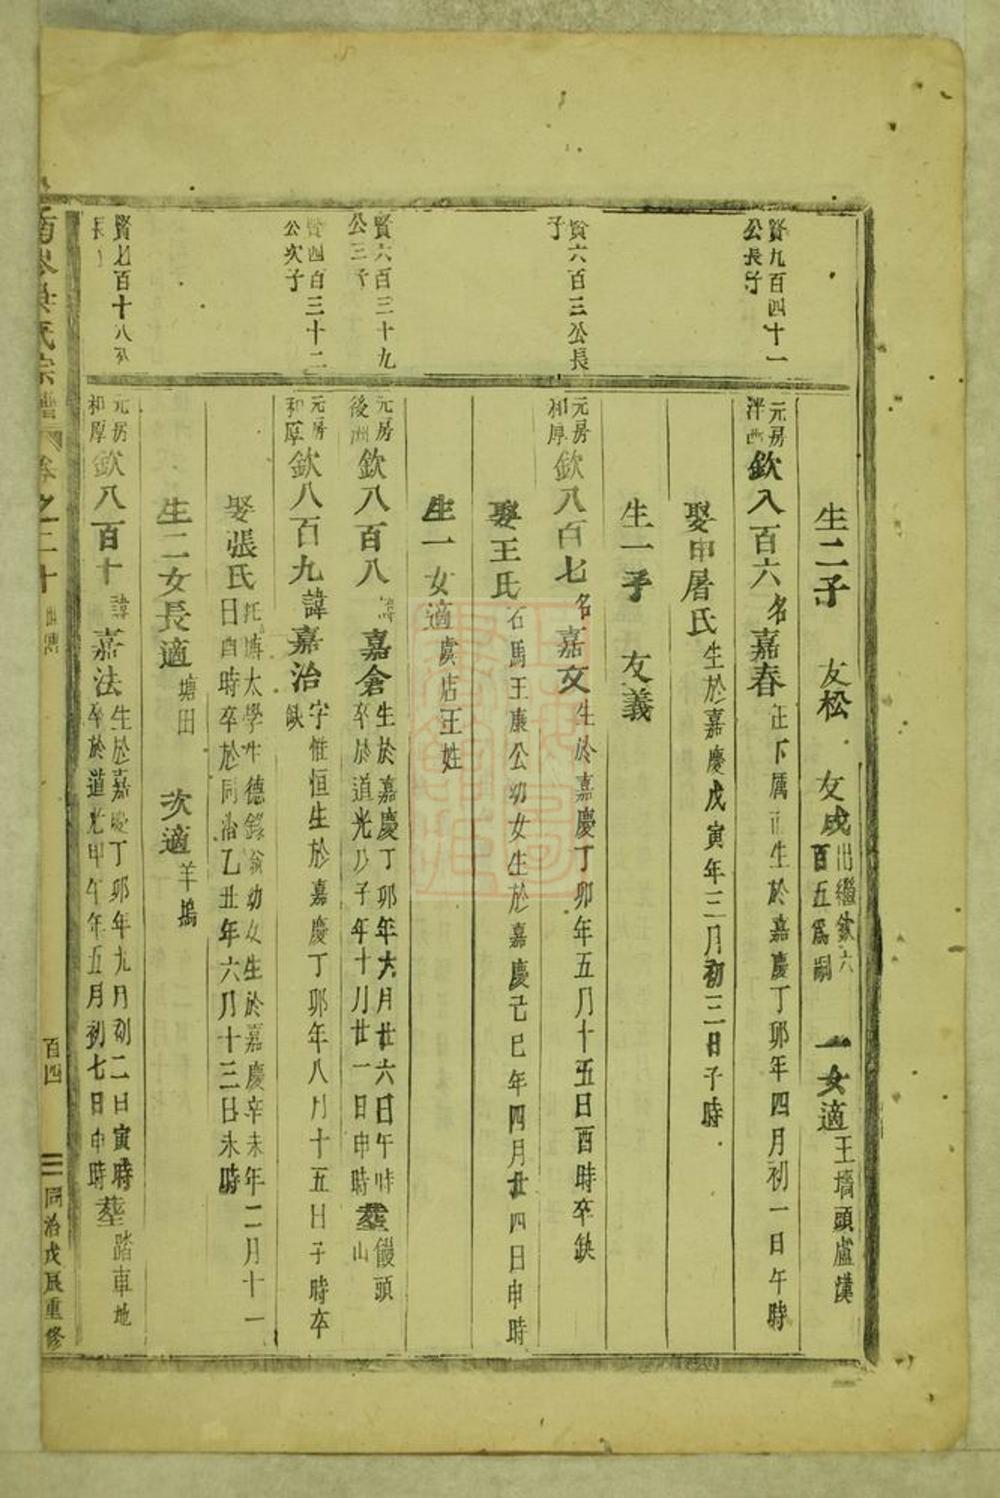 生二子 友松 友成出繼欽六百五爲嗣 一女適王墻頭盧漢
賢九百四十一公長子
元房泮西欽八百六名嘉春正下厲正生於嘉慶丁卯年四月初一日午時
娶申屠氏生於嘉慶戊寅年三月初三日子時
生一子 友義
賢六百三公長子
元房和厚欽八百七名嘉文生於嘉慶丁卯年五月十五日酉時卒缺
娶王氏石馬王康公幼女生於嘉慶己巳年四月廿四日申時
生一女適虞店王姓
賢六百三十九公三子
元房後洲欽八百八諱嘉倉生於嘉慶丁卯年六月廿六日午時卒於道光戊子年十月廿一日申時葬饅頭山
賢四百三十二公次子
元房和厚欽八百九諱嘉治字惟恒生於嘉慶丁卯年八月十五日子時卒缺
娶張氏托塘太學生德錄翁幼女生於嘉慶辛未年二月十一日酉時卒於同治乙丑年六月十三日未時
生二女長適塘田 次適羊塢
賢七百十八公長
元房和厚欽八百十諱嘉法生於嘉慶丁卯年九月初二日寅時卒於道光甲午年五月初七日申時葬踏車地
南岑吳氏宗譜 卷之二十 百四 同治戊辰重修